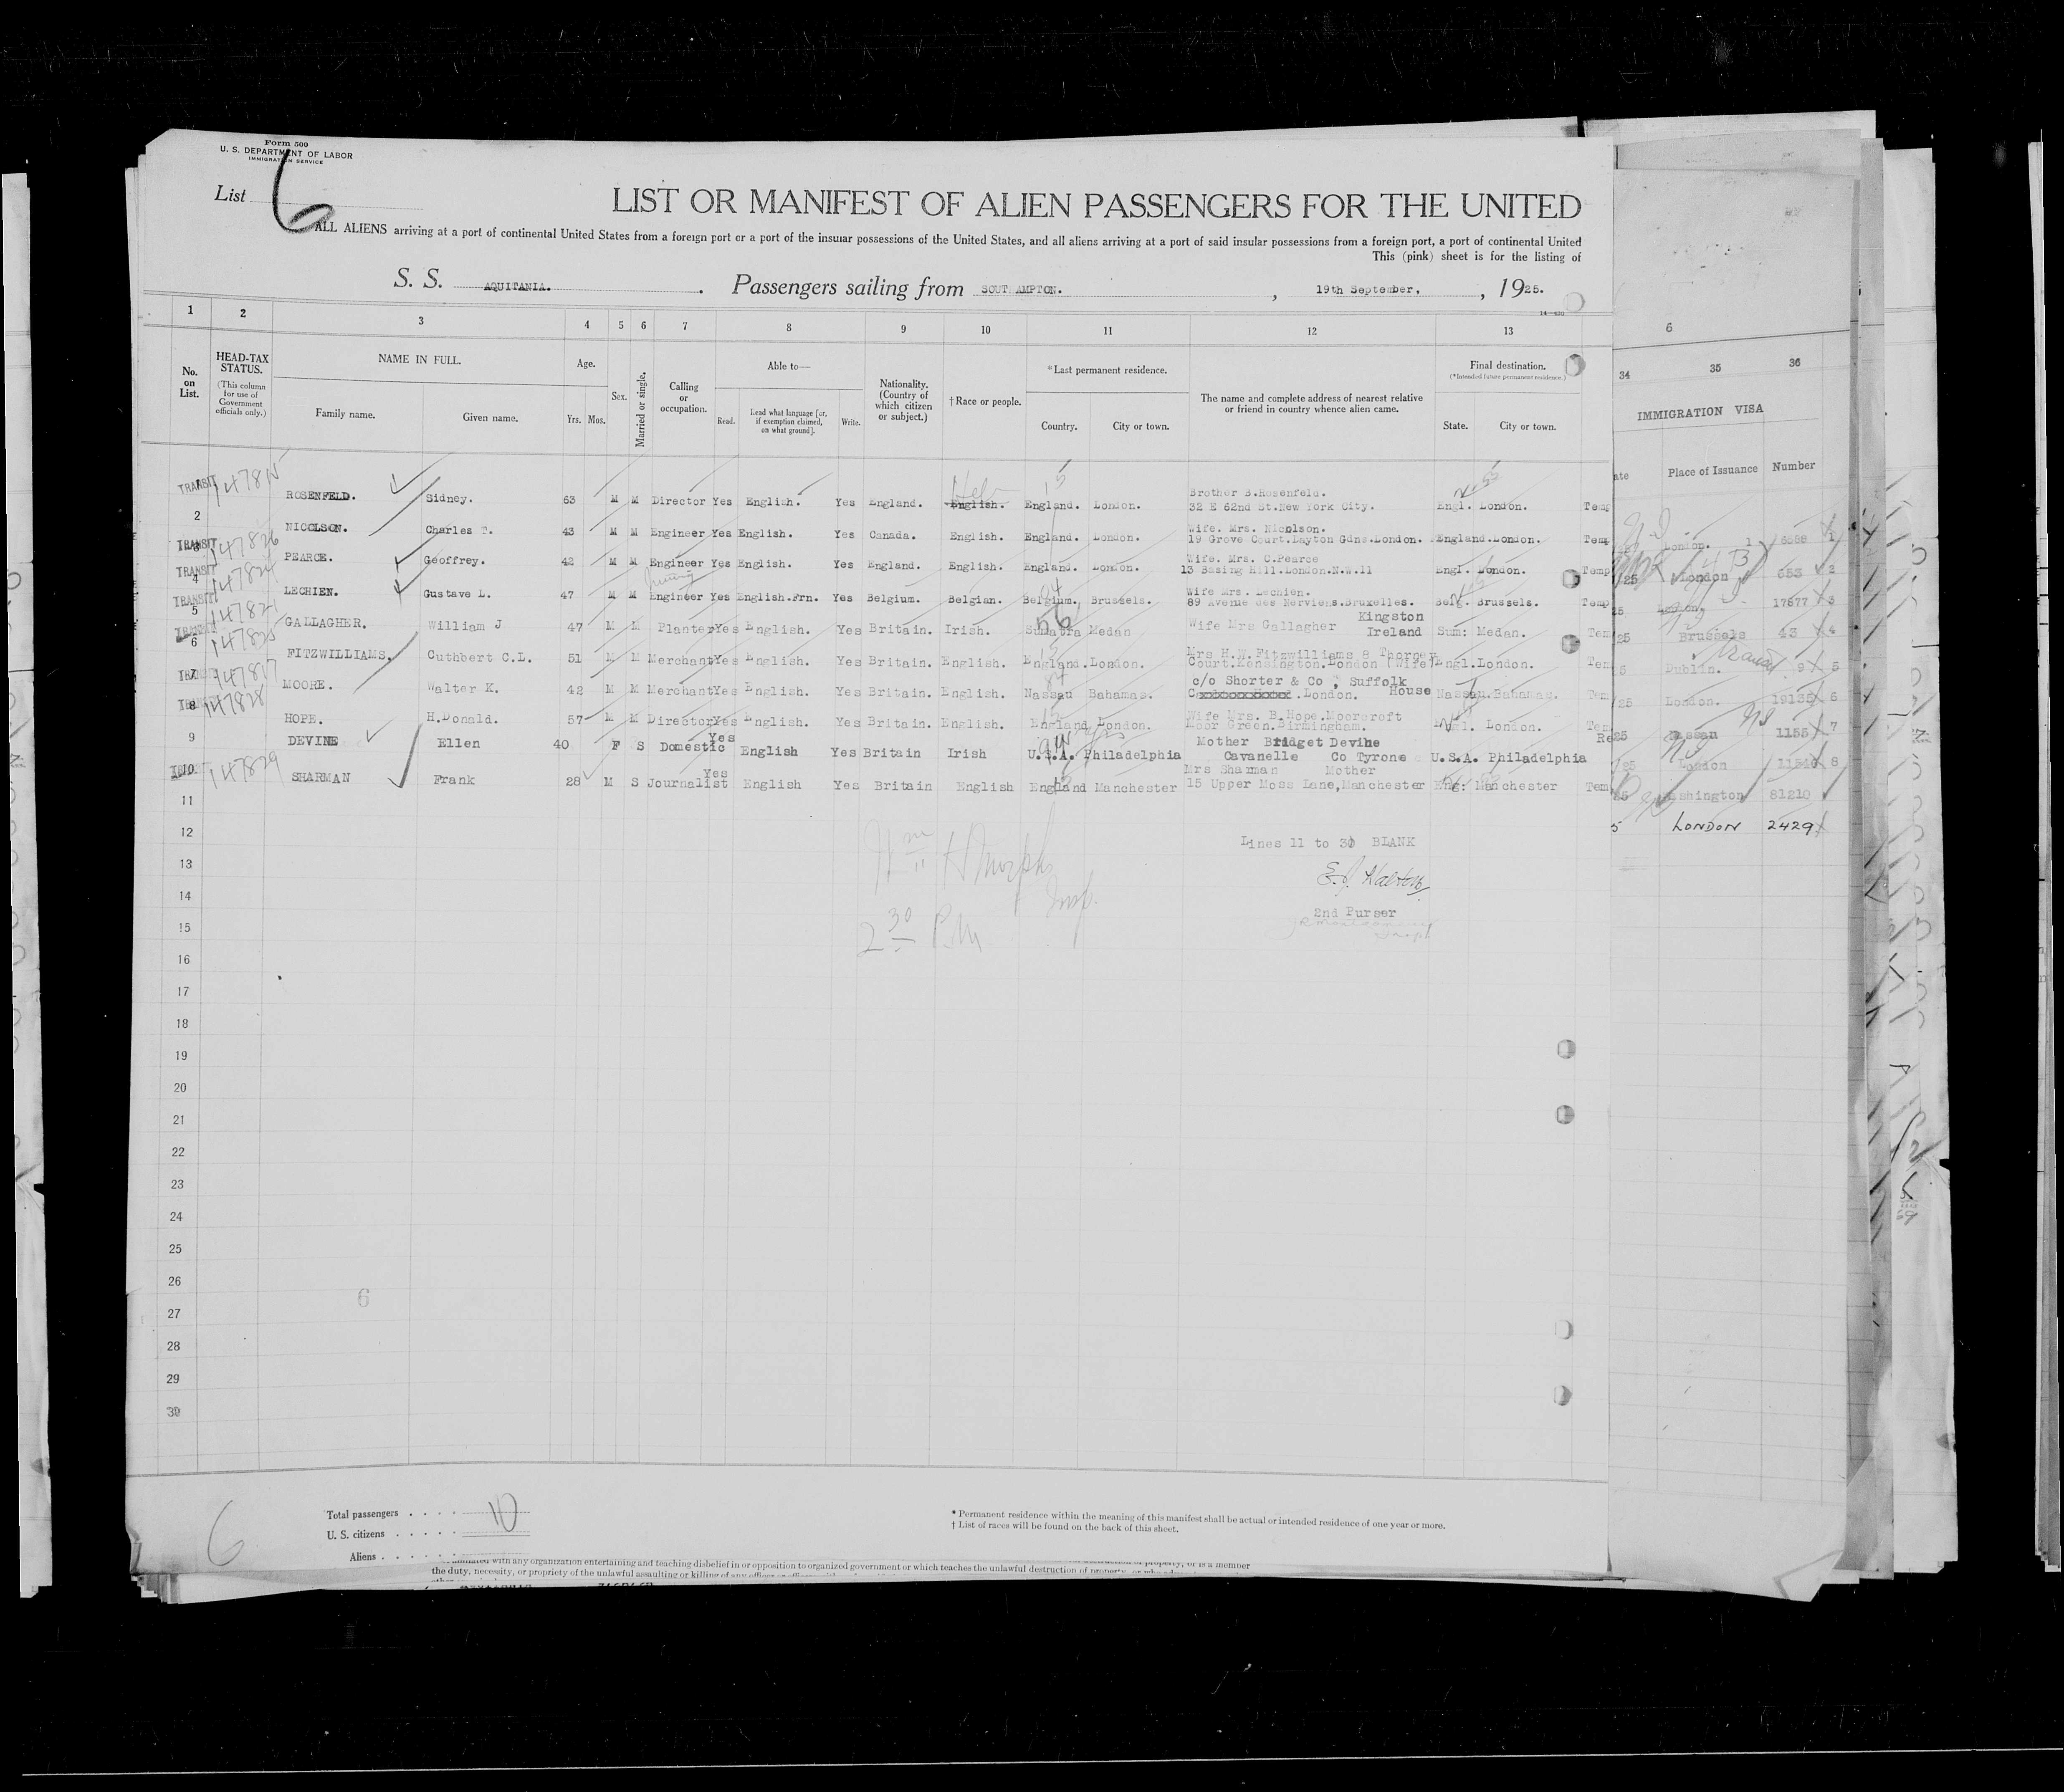 Form 500
U. S. DEPARTMENT OF LABOR
IMMIGRATION SERVICE
List 6
LIST OR MANIFEST OF ALIEN PASSENGERS FOR THE UNITED
ALL ALIENS arriving at a port of continental United States from a foreign port or a port of the insular possessions of the United States, and all aliens arriving at a port of said insular possessions from a foreign port, a port of continental United
This (pink) sheet is for the listing of
S. S. AQUITANIA. Passengers sailing from SOUTHAMPTON. , 19th September, , 1925.
1 2 3 4 5 6 7 8 9 10 11 12 13
6
34 35 36
No. on List.
HEAD-TAX STATUS.
(This column for use of Government officials only.)
NAME IN FULL.
Family name. Given name.
Age.
Yrs. Mos.
Sex.
Married or single.
Calling or occupation.
Able to—
Read. Read what language [or, if exemption claimed, on what ground]. Write.
Nationality. (Country of which citizen or subject.)
†Race or people.
*Last permanent residence.
Country. City or town.
The name and complete address of nearest relative or friend in country whence alien came.
Final destination.
(*Intended future permanent residence.)
State. City or town.
IMMIGRATION VISA
Place of Issuance Number
TRANSIT ROSENFELD. Sidney. 63 M M Director Yes English. Yes England. English. England. London. Brother B.Rosenfeld. 32 E 62nd St.New York City. Engl. London.
2 NICOLSON. Charles T. 43 M M Engineer Yes English. Yes Canada. English. England. London. Wife. Mrs. Nicolson. 19 Grove Court.Layton Gdns.London. England.London.
TRANSIT 147826 PEARCE. Geoffrey. 42 M M Engineer Yes English. Yes England. English. England. London. Wife. Mrs. C.Pearce 13 Basing Hill.London.N.W.11 Engl. London.
TRANSIT 4 LECHIEN. Gustave L. 47 M M Engineer Yes English.Frn. Yes Belgium. Belgian. Belgium. Brussels. Wife Mrs. Lechien. 89 Avenue des Nerviens.Bruxelles. Belg. Brussels.
TRANSIT 5 GALLAGHER. William J 47 M M Planter Yes English. Yes Britain. Irish. Sumatra Medan Wife Mrs Gallagher Kingston Ireland Sum: Medan.
6 FITZWILLIAMS. Cuthbert C.L. 51 M M Merchant Yes English. Yes Britain. English. England.London. Mrs H.W.Fitzwilliams 8 Thorner Court.Kensington.London (Wife) Engl.London.
7 MOORE. Walter K. 42 M M Merchant Yes English. Yes Britain. English. Nassau Bahamas. c/o Shorter & Co , Suffolk House .London. Nassau.Bahamas.
8 147828 HOPE. H.Donald. 57 M M Director Yes English. Yes Britain. English. England London. Wife Mrs. B.Hope.Moorcroft Moor Green.Birmingham. Engl. London.
9 DEVINE Ellen 40 F S Domestic Yes English Yes Britain Irish U.S.A. Philadelphia Mother Bridget Devine Cavanelle Co Tyrone U.S.A. Philadelphia
10 147829 SHARMAN Frank 28 M S Journalist Yes English Yes Britain English England Manchester Mrs Sharman Mother 15 Upper Moss Lane,Manchester Eng: Manchester
London. 6588 1
London 553 2
London. 17577 3
Brussels 43 4
Dublin. 9 5
London. 19135 6
Nassau 1155 7
London 8
Washington 81210
LONDON 2429
11
12
Lines 11 to 30 BLANK
13
14
E.J. Walton
2nd Purser
15
2 30 P.M
16
17
18
19
20
21
22
23
24
25
26
6
27
28
29
30
Total passengers . . . . 10
U. S. citizens . . . . .
Aliens . . . . . .
6
* Permanent residence within the meaning of this manifest shall be actual or intended residence of one year or more.
† List of races will be found on the back of this sheet.
with any organization entertaining and teaching disbelief in or opposition to organized government or which teaches the unlawful destruction of property, or is a member
the duty, necessity, or propriety of the unlawful assaulting or killing of any officer